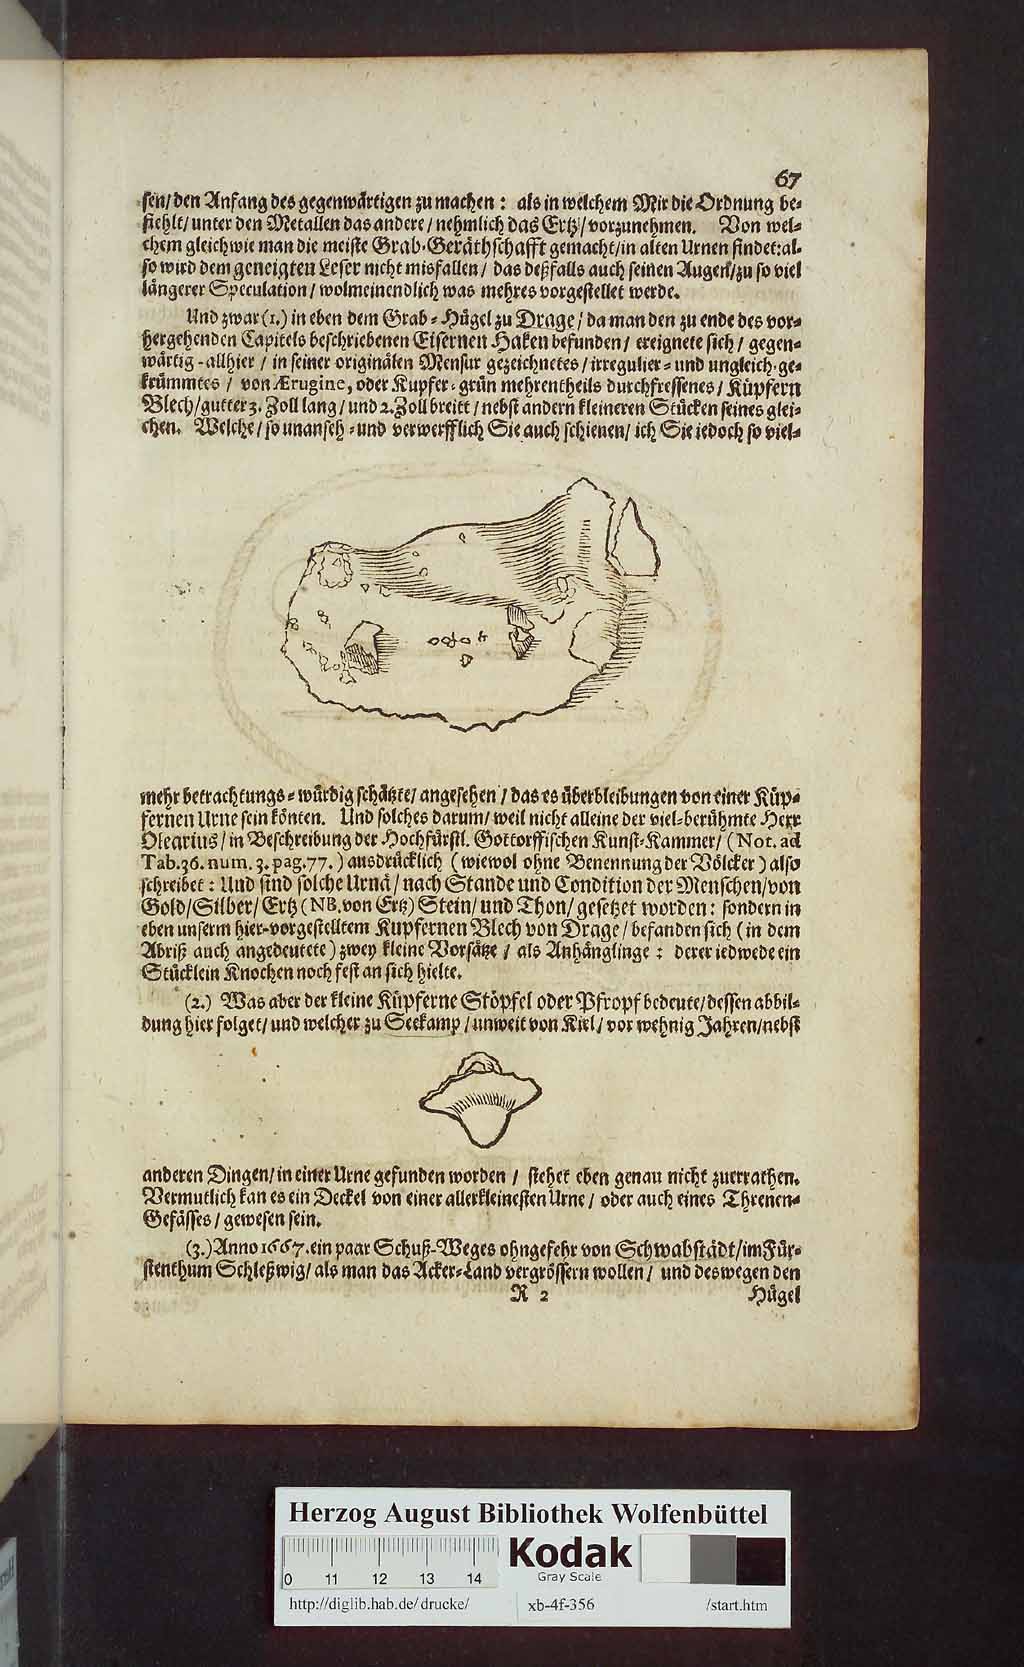 67
sen/ den Anfang des gegenwärtigen zu machen : als in welchem Mir die Ordnung be-
fiehlt/ unter den Metallen das andere/ nehmlich das Ertz/ vorzunehmen. Von wel-
chem gleichwie man die meiste Grab-Geräthschafft gemacht/ in alten Urnen findet: al-
so wird dem geneigten Leser nicht misfallen / das deßfalls auch seinen Augen/ zu so viel
längerer Speculation / wolmeinendlich was mehres vorgestellet werde.
Und zwar (1.) in eben dem Grab-Hügel zu Drage/ da man den zu ende des vor-
hergehenden Capitels beschriebenen Eisernen Haken befunden/ ereignete sich/ gegen-
wärtig-allhier / in seiner originälen Mensur gezeichnetes/ irregulier- und ungleich-ge-
krümmtes / von Ærugine, oder Kupfer-grün mehrentheils durchfressenes/ Küpfern
Blech/ gutter 3. Zoll lang/ und 2. Zoll breitt/ nebst andern kleineren Stücken seines glei-
chen. Welche/ so unanseh- und verwerfflich Sie auch schienen/ ich Sie iedoch so viel-
mehr betrachtungs-würdig schätzte/ angesehen / das es überbleibungen von einer Küp-
fernen Urne sein könten. Und solches darum/ weil nicht alleine der viel-berühmte Herr
Olearius/ in Beschreibung der Hochfürstl. Gottorffischen Kunst-Kammer/ (Not. ad
Tab. 36. num. 3. pag. 77.) ausdrücklich (wiewol ohne Benennung der Völcker) also
schreibet: Und sind solche Urnä/ nach Stande und Condition der Menschen/ von
Gold/ Silber/ Ertz (NB. von Ertz) Stein/ und Thon/ gesetzet worden: sondern in
eben unserm hier-vorgestelltem Kupfernen Blech von Drage/ befanden sich (in dem
Abriß auch angedeutete) zwey kleine Vorsätze / als Anhänglinge : derer iedwede ein
Stücklein Knochen noch fest an sich hielte.
(2.) Was aber der kleine Küpferne Stöpfel oder Pfropf bedeute/ dessen abbil-
dung hier folget/ und welcher zu Seekamp / unweit von Kiel/ vor wehnig Jahren/ nebst
anderen Dingen/ in einer Urne gefunden worden / stehet eben genau nicht zuerrathen.
Vermutlich kan es ein Deckel von einer allerkleinesten Urne / oder auch eines Threnen-
Gefässes / gewesen sein.
(3.) Anno 1667. ein paar Schuß-Weges ohngefehr von Schwabstädt/ im Für-
stenthum Schleßwig/ als man das Acker-Land vergrössern wollen / und deswegen den
R 2 Hügel
Herzog August Bibliothek Wolfenbüttel
0 11 12 13 14
Kodak
Gray Scale
http://diglib.hab.de/drucke/ xb-4f-356 /start.htm